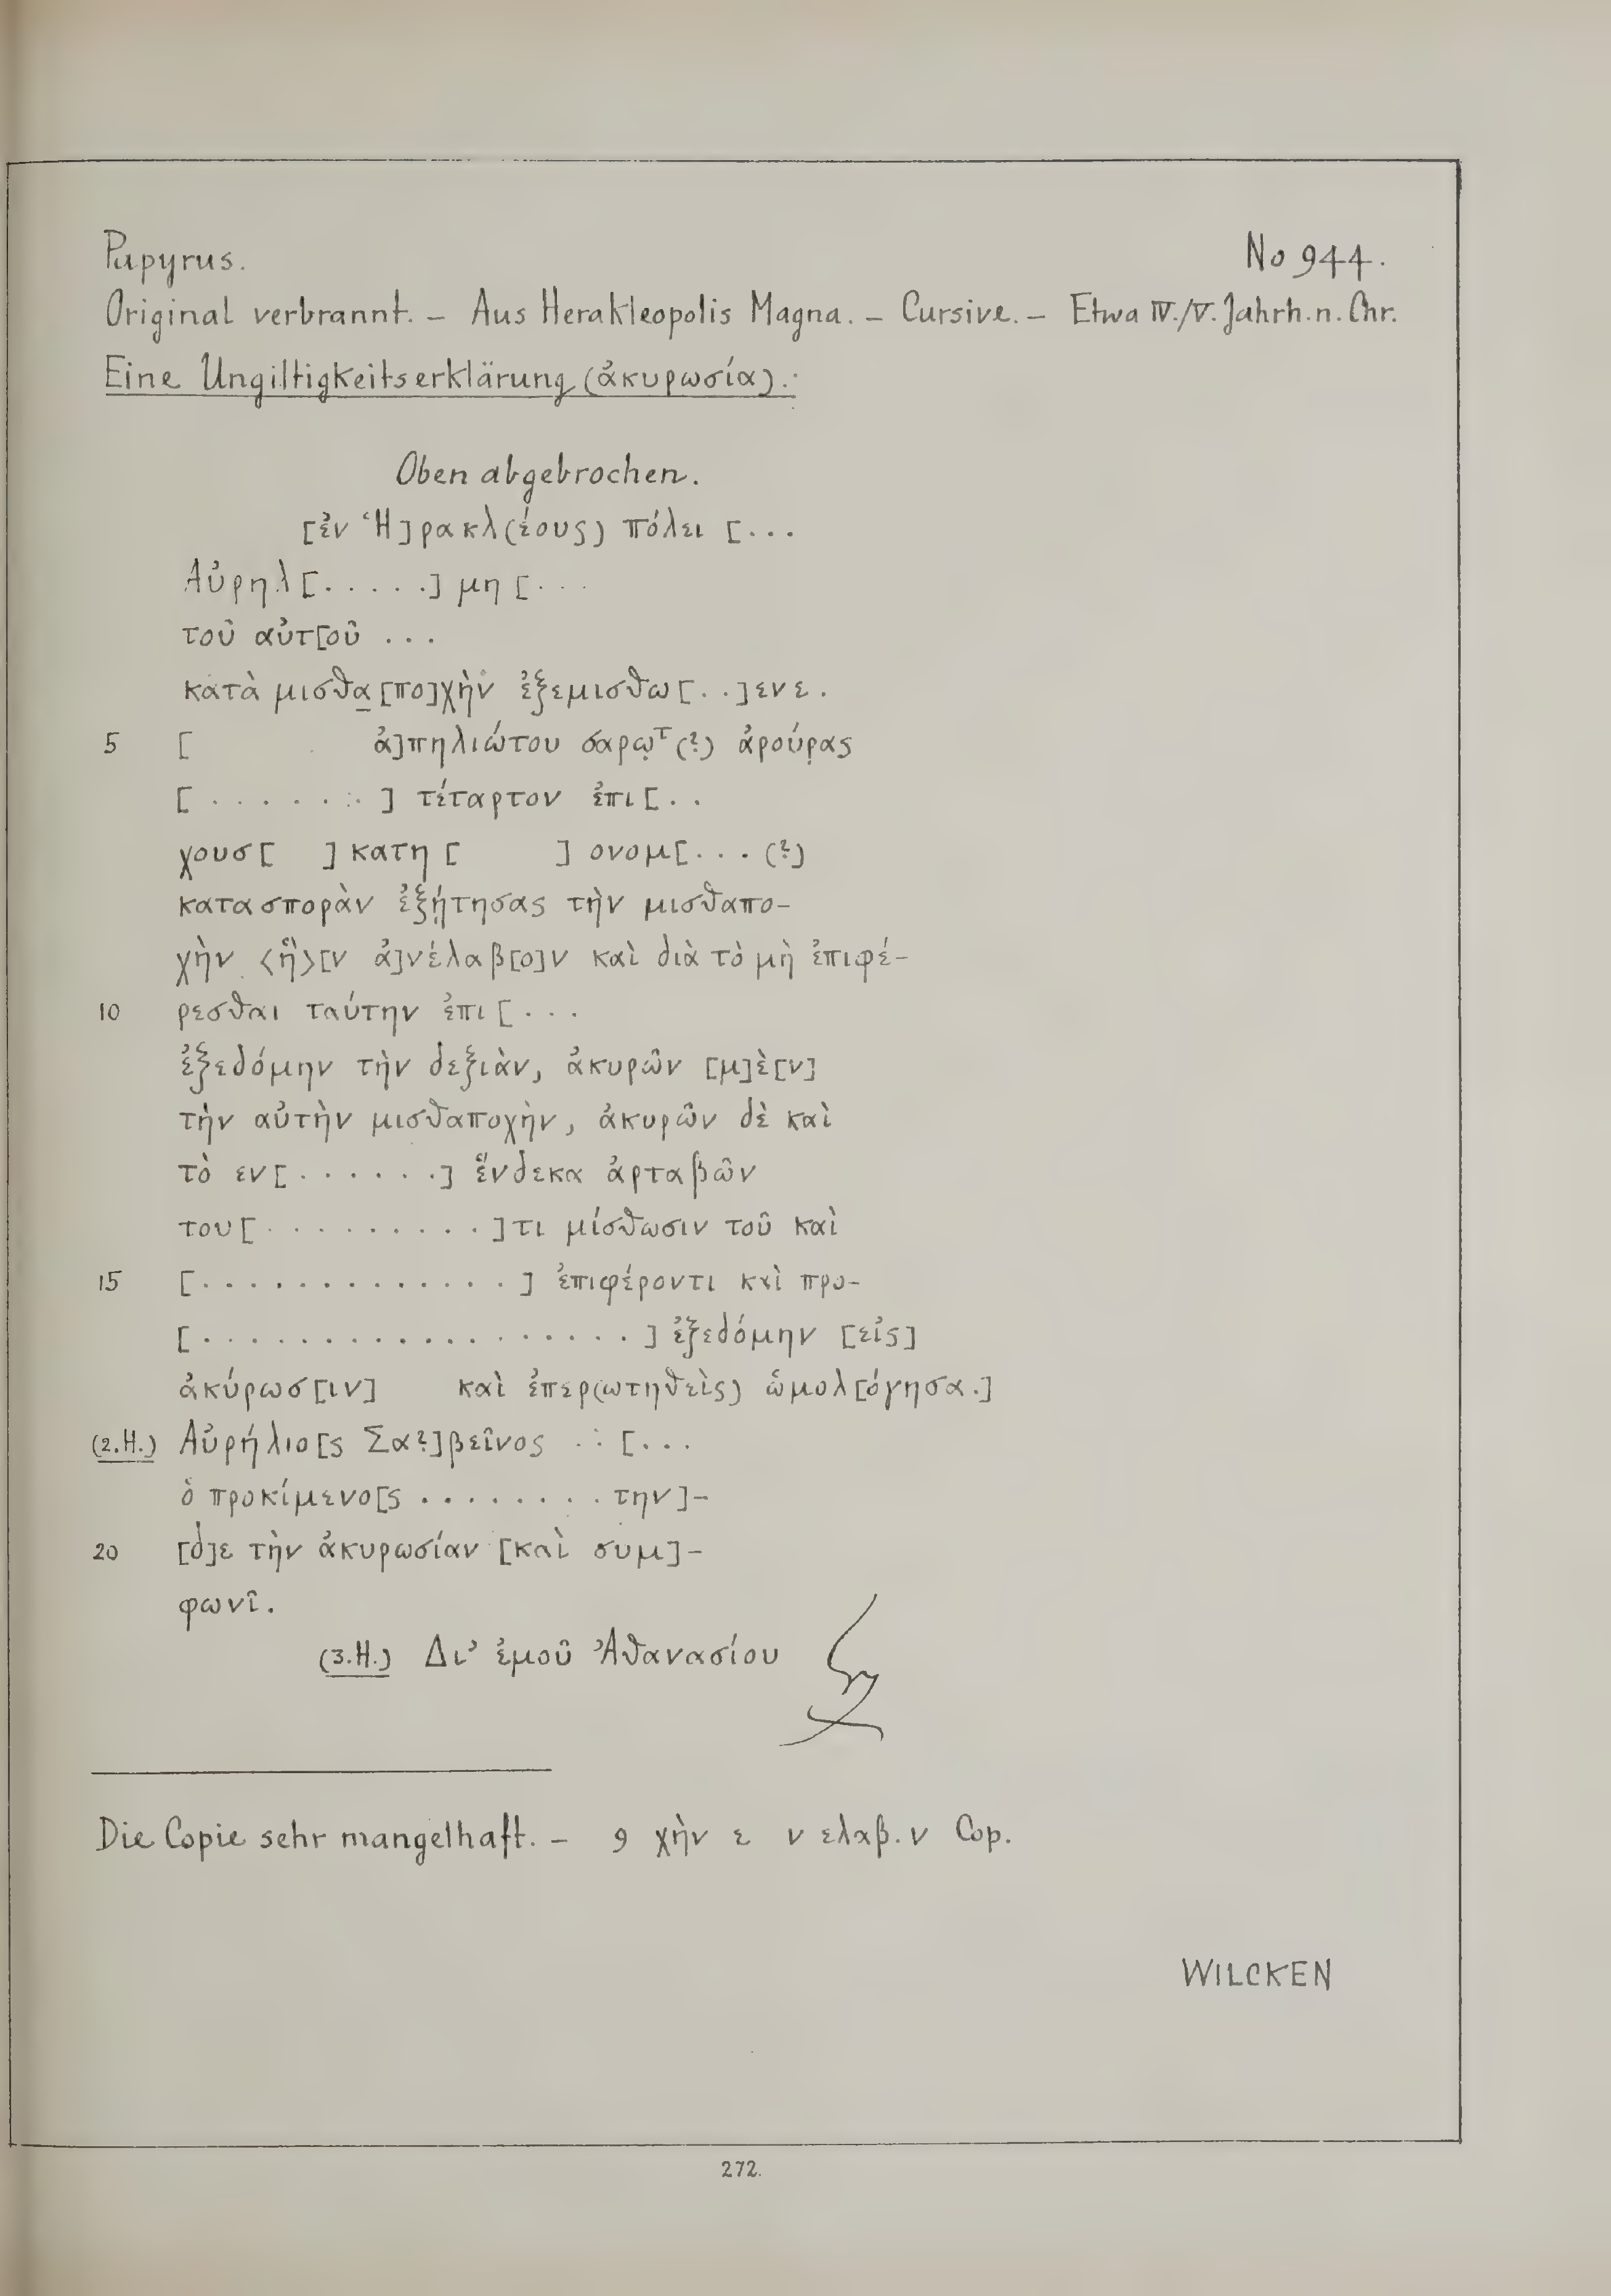 Papyrus. No 944.
Original verbrannt. – Aus Herakleopolis Magna. – Cursive. – Etwa IV./V. Jahrh. n. Chr.
Eine Ungiltigkeitserklärung (ἀκυρωσία).
Oben abgebrochen.
[ἐν Ἡ]ρακλ(έους) πόλει [...
Αὐρηλ[.....] μη [...
τοῦ αὐτ[οῦ ...
κατὰ μισθα̲[πο]χὴν ἐξεμισθω[..]ενε.
5 [ ἀ]πηλιώτου σαρῳᵀ(?) ἀρούρ̣ας
[.......] τέταρτον ἐπι[..
χουσ[ ] κατη [ ] ονομ[... (?)
κατασπορὰν ἐξῄτησας τὴν μισθαπο-
χὴν <ἣ>[ν ἀ]νέλαβ[ο]ν καὶ διὰ τὸ μὴ ἐπιφέ-
10 ρεσθαι ταύτην ἐπι[...
ἐξεδόμην τὴν δεξιὰν, ἀκυρῶν [μ]ὲ[ν]
τὴν αὐτὴν μισθαποχὴν, ἀκυρῶν δὲ καὶ
τὸ εν[.......] ἕνδεκα ἀρταβῶν
του[..........]τι μίσθωσιν τοῦ καὶ
15 [..............] ἐπιφέροντι καὶ προ-
[...................] ἐξεδόμην [εἰς]
ἀκύρωσ[ιν] καὶ ἐπερ(ωτηθεὶς) ὡμολ[όγησα.]
(2.H.) Αὐρήλιο[ς Σα?]βεῖνος ... [...
ὁ προκίμενο[ς ........ την]-
20 [δ]ε τὴν ἀκυρωσίαν [καὶ συμ]-
φωνῖ.
(3.H.) Δι' ἐμοῦ Ἀθανασίου
Die Copie sehr mangelhaft. – 9 χὴν ε ν ελαβ.ν Cop.
WILCKEN
272.